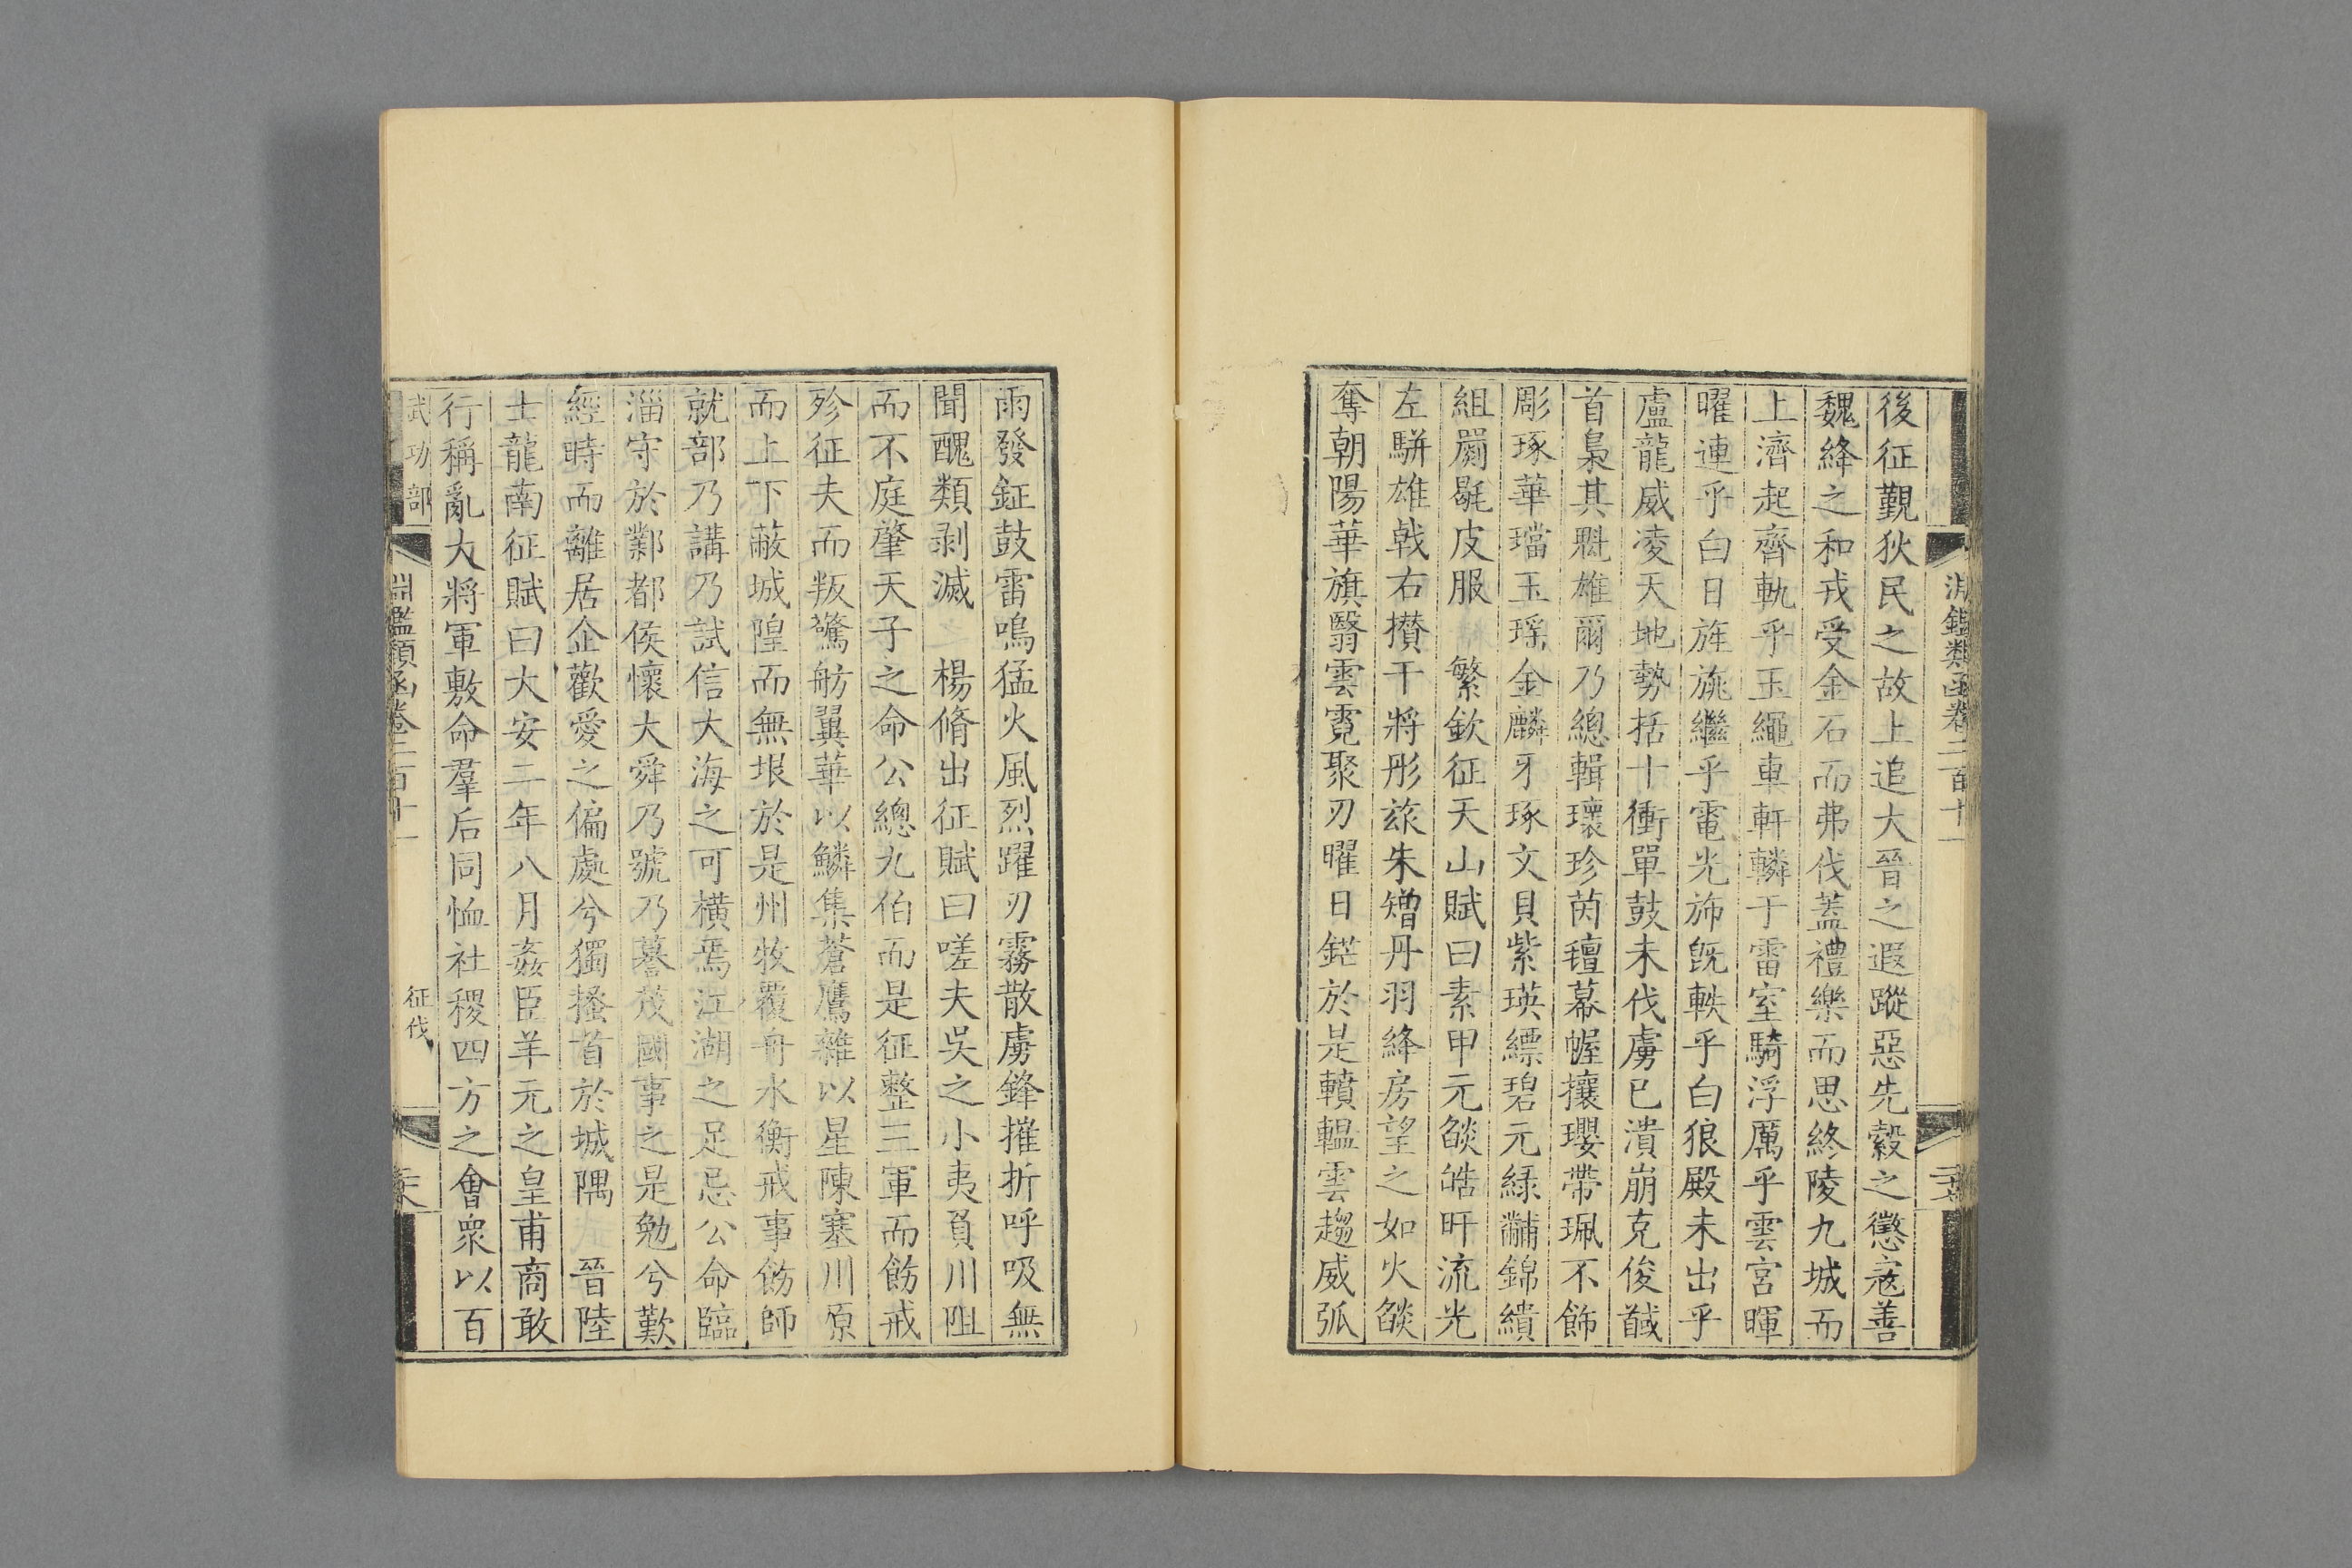 淵鑑類函卷二百十一
後征覲狄民之故上追大晉之遐蹤惡先縠之懲寇善
魏絳之和戎受金石而弗伐蓋禮樂而思終陵九城而
上濟起齊軌乎玉繩車軒轔于雷室騎浮厲乎雲宮暉
曜連乎白日旌旐繼乎電光旆旣軼乎白狼殿未出乎
盧龍威凌天地勢括十衝單鼓未伐虜已潰崩克俊馘
首梟其魁雄爾乃總輯瓌珍茵氊幕幄攘瓔帶珮不飾
彫琢華璫玉瑶金麟牙琢文貝紫瑛縹碧元綠黼錦繢
組罽㲣皮服　繁欽征天山賦曰素甲元燄皓旰流光
左駢雄戟右攢干將彤旅朱矰丹羽絳房望之如火燄
奪朝陽華旗翳雲霓聚刃曜日鋩於是轒轀雲趨威弧
雨發鉦鼓雷鳴猛火風烈躍刃霧散虜鋒摧折呼吸無
聞醜類剥滅　楊脩出征賦曰嗟夫吳之小夷負川阻
而不庭肇天子之命公總九伯而是征整三軍而飭戒
殄征夫而叛驚舫翼華以鱗集蒼鷹雜以星陳塞川原
而上下蔽城隍而無垠於是州牧覆舟水衡戒事飭師
就部乃講乃試信大海之可橫焉江湖之足忌公命臨
淄守於鄴都侯懷大舜乃號乃慕茂國事之是勉兮歎
經時而離居企歡愛之偏處兮獨搔首於城隅　晉陸
士龍南征賦曰大安二年八月姦臣羊元之皇甫商敢
行稱亂大將軍敷命羣后同恤社稷四方之會衆以百
武功部
淵鑑類函卷二百十一
征伐